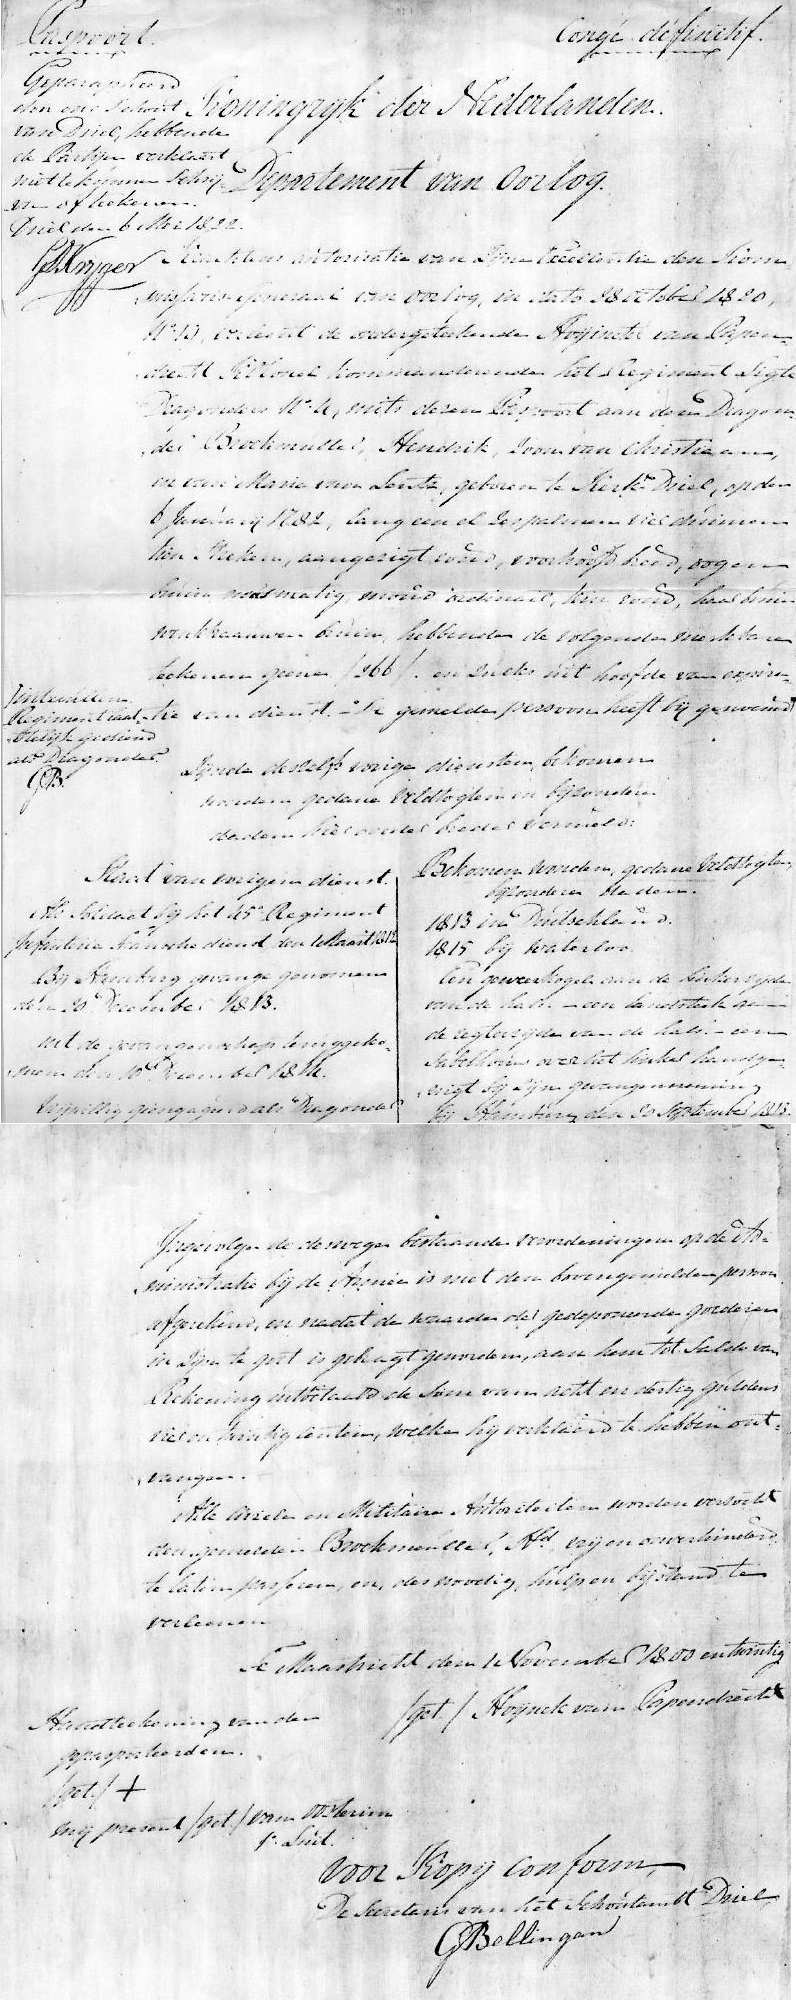 Paspoort.
Congé définitif.
Geparapheerd
door ons Schout
van Driel, hebbende
de Partije verklaart
niet te kunnen Schrij-
ven of tekenen.
Driel den 6 Mei 1822.
Kryger
Koningryk der Nederlanden.
Departement van Oorlog.
Krachtens autorisatie van Zijne Excellentie den Kom-
missaris Generaal van Oorlog, in dato 28 october 1820,
No 13, verleent de ondergeteekende Hoynck van Papen-
drecht Kolonel kommanderende het Regiment Ligte
Dragonders No 4, mits deren Paspoort aan den Dragon-
der Brockmuller, Hendrik, Zoon van Christiaan,
en van Maria van Lent, geboren te Kerk Driel, op den
6 January 1782, lang een el zes palmen vier duimen
tien streken, aangezigt rond, voorhoofd rond, oogen
bruin neus matig, mond ordinair, kin rond, haar bruin
wenkbraauwen bruin, hebbende de volgende merkbare
teekenen geene /266/. en zulks uit hoofde van expira-
tie van dienst. - De gemelde persoon heeft bij genoemd
Regiment laat-
stelijk gediend
als Dragonder.
GB.
Zijnde deszelfs vorige diensten, bekomen
wonden gedane veldtogten en bijzondere
daden hieronder breder vermeld:
Staat van vorigen dienst.
Als Soldaat bij het 45e Regiment
Infanterie Fransche dienst den 1 Maart 1812
Bij Hamburg gevange genomen
den 20 December 1813.
uit de gevangenschap teruggeko-
men den 10 December 1814.
Vrijwillig geengageerd als Dragonder
Bekomen wonden, gedane Veldtogten,
bijzondere daden.
1813 in Duitschland.
1815 bij Waterloo.
Een geweerkogel aan de linkerzijde
van de hals - een lanssteek aan
de regterzijde van de hals - een
Sabelhouw over het linker handge-
wrigt bij zijn gevangenneming
bij Hamburg den 20 September 1813.
Ingevolge de deswege bestaande verordeningen op de Ad-
ministratie bij de Armee is met den bovengemelden persoon
afgerekend, en nadat de waarde der gedeponeerde goederen
in zijn te goet is gebragt geworden, aan hem tot Saldo van
Rekening uitbetaald de Som van acht en dertig guldens
vier en twintig centen, welke hij verklaard te hebben ont-
vangen.
Alle Civiele en Militaire Autoriteiten worden verzocht
den gemelden Brockmuller, Hd vrij en onverhinderd
te laten passeren, en, des noodig, hulp en bijstand te
verleenen
Te Maastricht den 1 November 1800 en twintig
/get./ Hoynck van Papendrecht
Handteekening van den
gepasporteerden.
/get/ +
mij present /get/ van Oosterim
1e Luit.
Voor Kopij conform,
De Secretaris van het Schoutambt Driel,
GBellingan